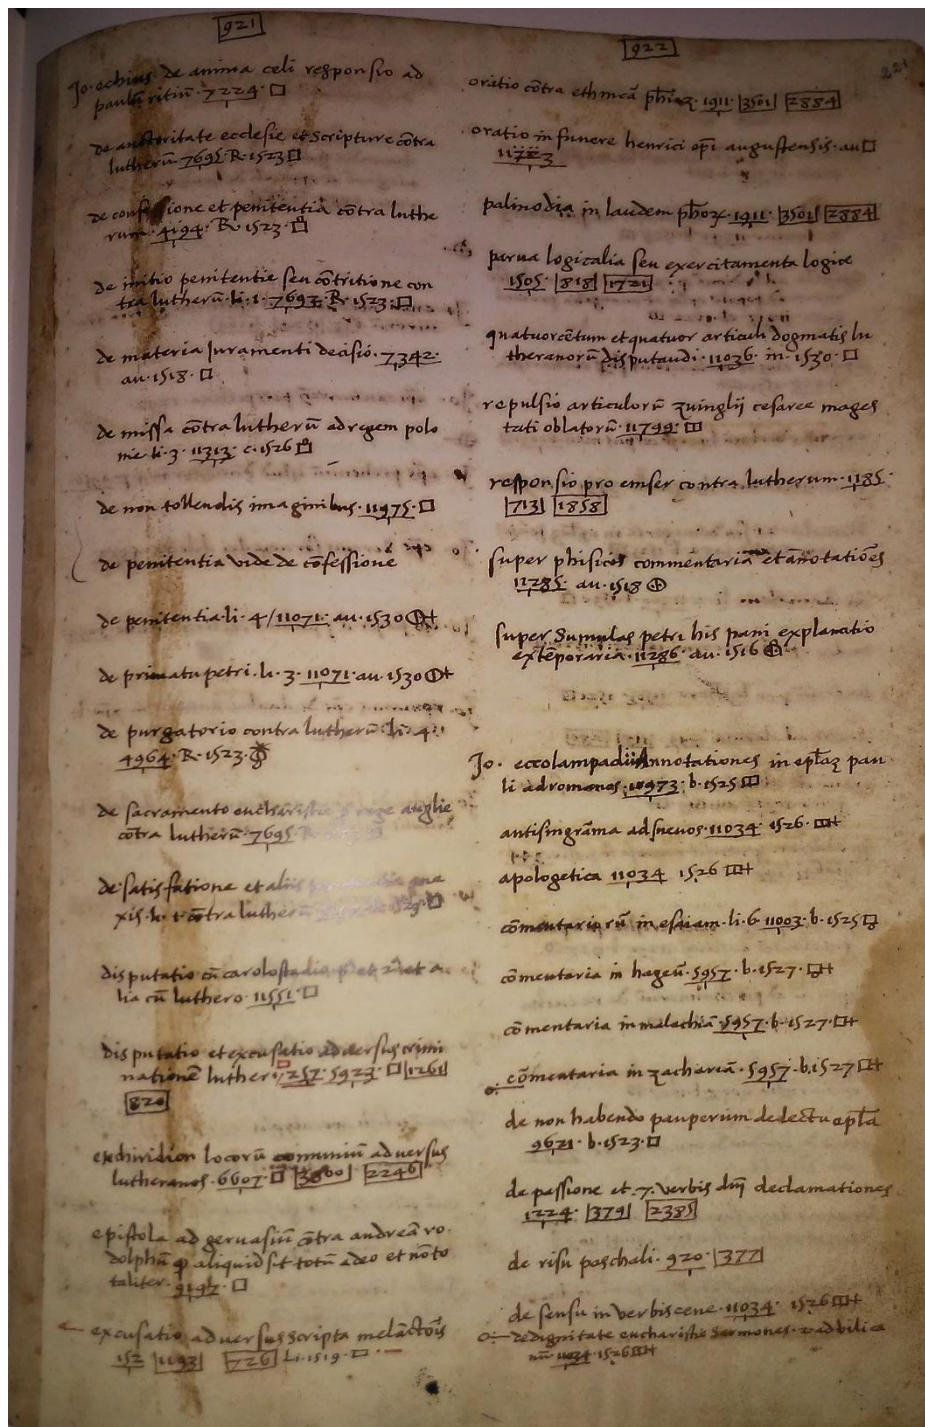 921
Jo. echius de anima celi responsio ad
paulū ritiū. 7224. □
de auctoritate ecclesie et scripture cōtra
lutherū 7695 R. 1523 □
de confessione et penitentia cōtra luthe
rum. 4194. R. 1523. □
de initio penitentie seu cōtritione con
tra lutherū. li. 1. 7693. R. 1523. □
de materia Juramenti decisio. 7342.
au. 1518. □
de missa cōtra lutherū ad regem polo
nie. li. 3. 11313. c. 1526 □
de non tollendis imaginibus. 11975. □
de penitentia vide de cōfessione
de penitentia. li. 4/11071. au. 1530 ⊕+
de primatu petri. li. 3. 11071. au. 1530 ⊕+
de purgatorio contra lutherū li. 4.
4964. R. 1523.
de sacramento eucharistie anglie
cōtra lutherū. 7695
de satisfatione et aliis pene
xis. li. 1. cōtra lutherū □
disputatio cū carolostadio et a
lia cū luthero. 11551. □
disputatio et excusatio adversus crimi
nationē lutheri. 257. 5923. □ 1261
820
enchiridion locorū communiū adversus
lutheranos. 6607. □ 3800 2246
epistola ad gervasiū cōtra andreā ro
dolphū aliquid sit totū a deo et nō to
taliter. 9197. □
excusatio adversus scripta melāctōis
152 1193 726 Li. 1519. □
922
221
oratio cōtra ethnicā 1911. 3501 2884
oratio in funere henrici epī augustensis. au □
11723
palinodia in laudem 1911. 3501 2884
parva logicalia seu exercitamenta logice
1505. 818 1721
quatuorcētum et quatuor articuli dogmatis lu
theranorū disputandi. 11036. in. 1530. □
repulsio articulorū zuinglij cesaree mages
tati oblatorū. 11799. □
responsio pro emser contra lutherum. 1185.
713 1858
super phisicos commentaria et ānotatiōes
11285. au. 1518 ⊕
super Sumulas petri hispani explanatio
extēporaria. 11286. au. 1516 ⊕
Jo. eccolampadii Annotationes in epłaz pau
li ad romanos. 10973. b. 1525 □
antisingrāma ad suevos. 11034. 1526. □+
apologetica 11034 1526 □+
cōmentariorū in esaiam. li. 6. 11003. b. 1525 □
cōmentaria in hageū. 5957. b. 1527. □+
cōmentaria in malachiā. 5957. b. 1527. □+
cōmentaria in zachariā. 5957. b. 1527 □+
de non habendo pauperum delectu epła
9621. b. 1523. □
de passione et. 7. verbis dnī declamationes
1224. 379 2385
de risu paschali. 920. 377
de sensu in verbis cene. 11034. 1526 □+
de dignitate eucharistie sermones. 2. ad bilica
nū. 11034. 1526 □+